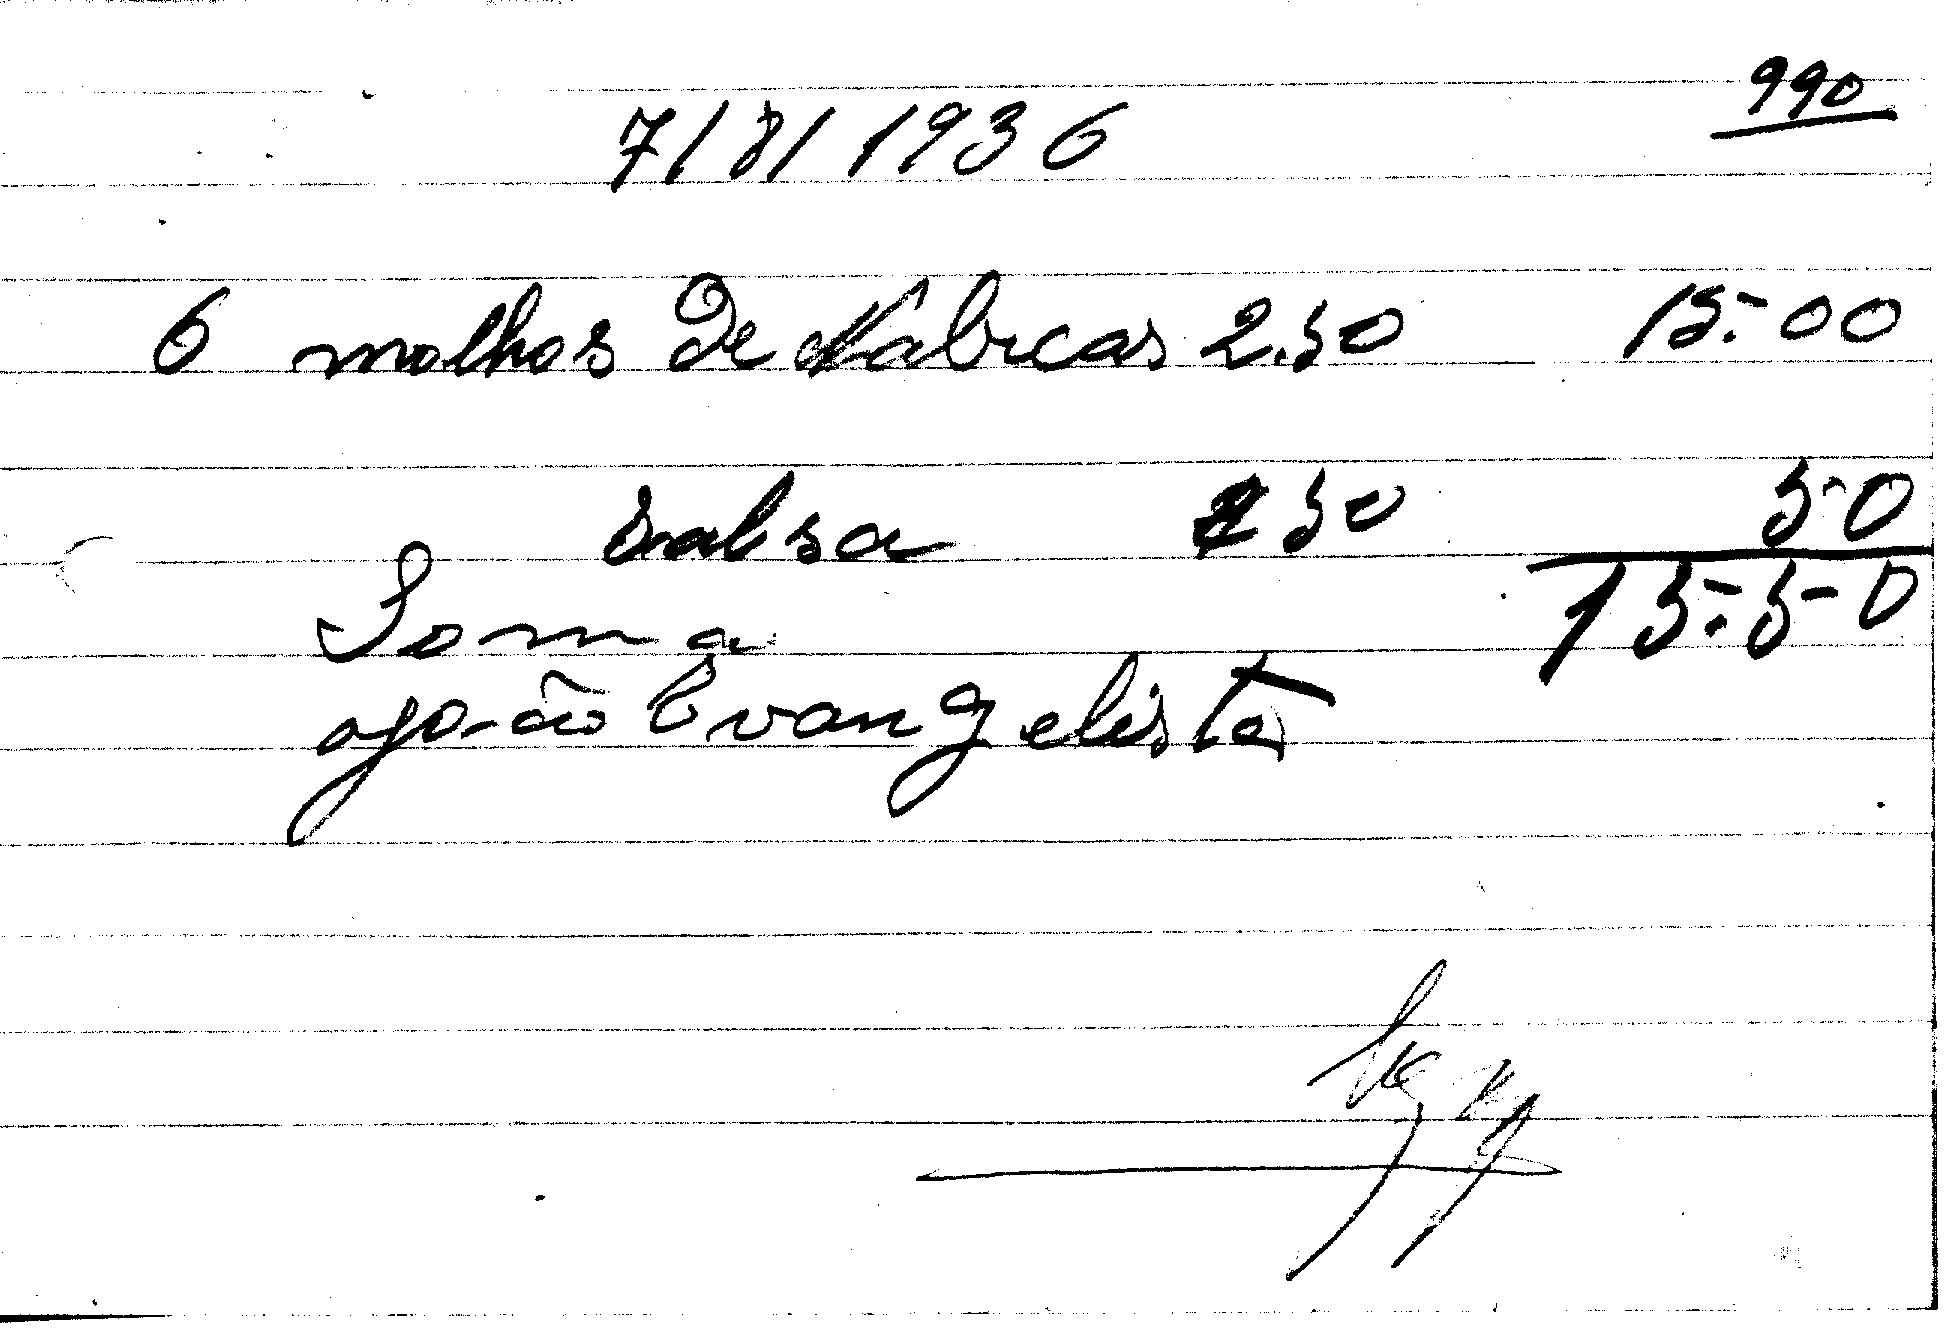 990
7/8/1936
6 molhos de Nabicas 2.50 15:00
salsa 50 50
Soma 15:50
João Evangelista